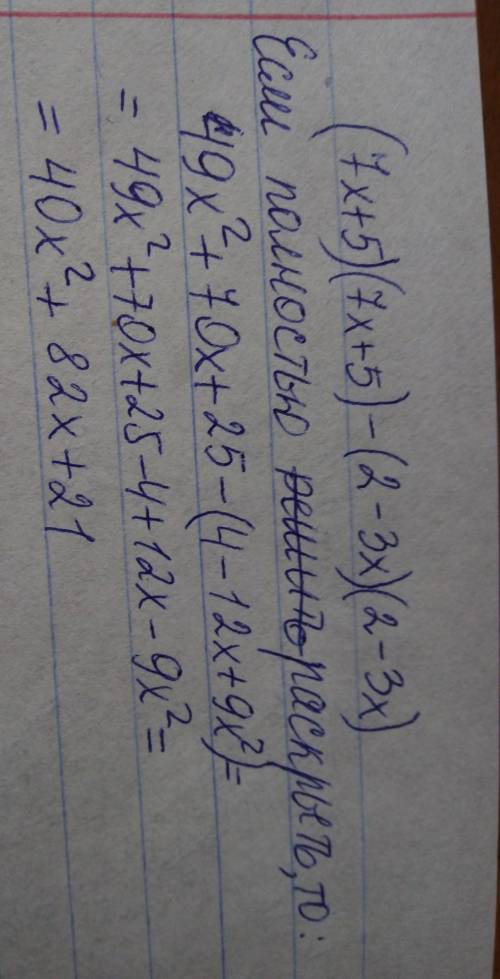 (7x+5)(7x+5)-(2-3x)(2-3x)
Если полностью решить раскрыть, то:
49x²+70x+25-(4-12x+9x²)=
=49x²+70x+25-4+12x-9x²=
=40x²+82x+21